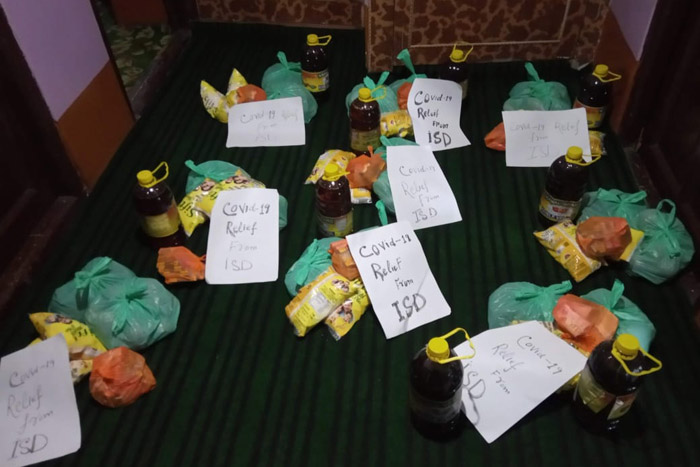 Covid-19 Relief
from
Covid-19
Relief
From
ISD
Covid-19 Relief
from
ISD
Covid-19
Relief
From
ISD
Covid-19
Relief
From
ISD
Covid-19
Relief
From
ISD
Covid-19
Relief
From
ISD
Covid-19
Relief
from
ISD